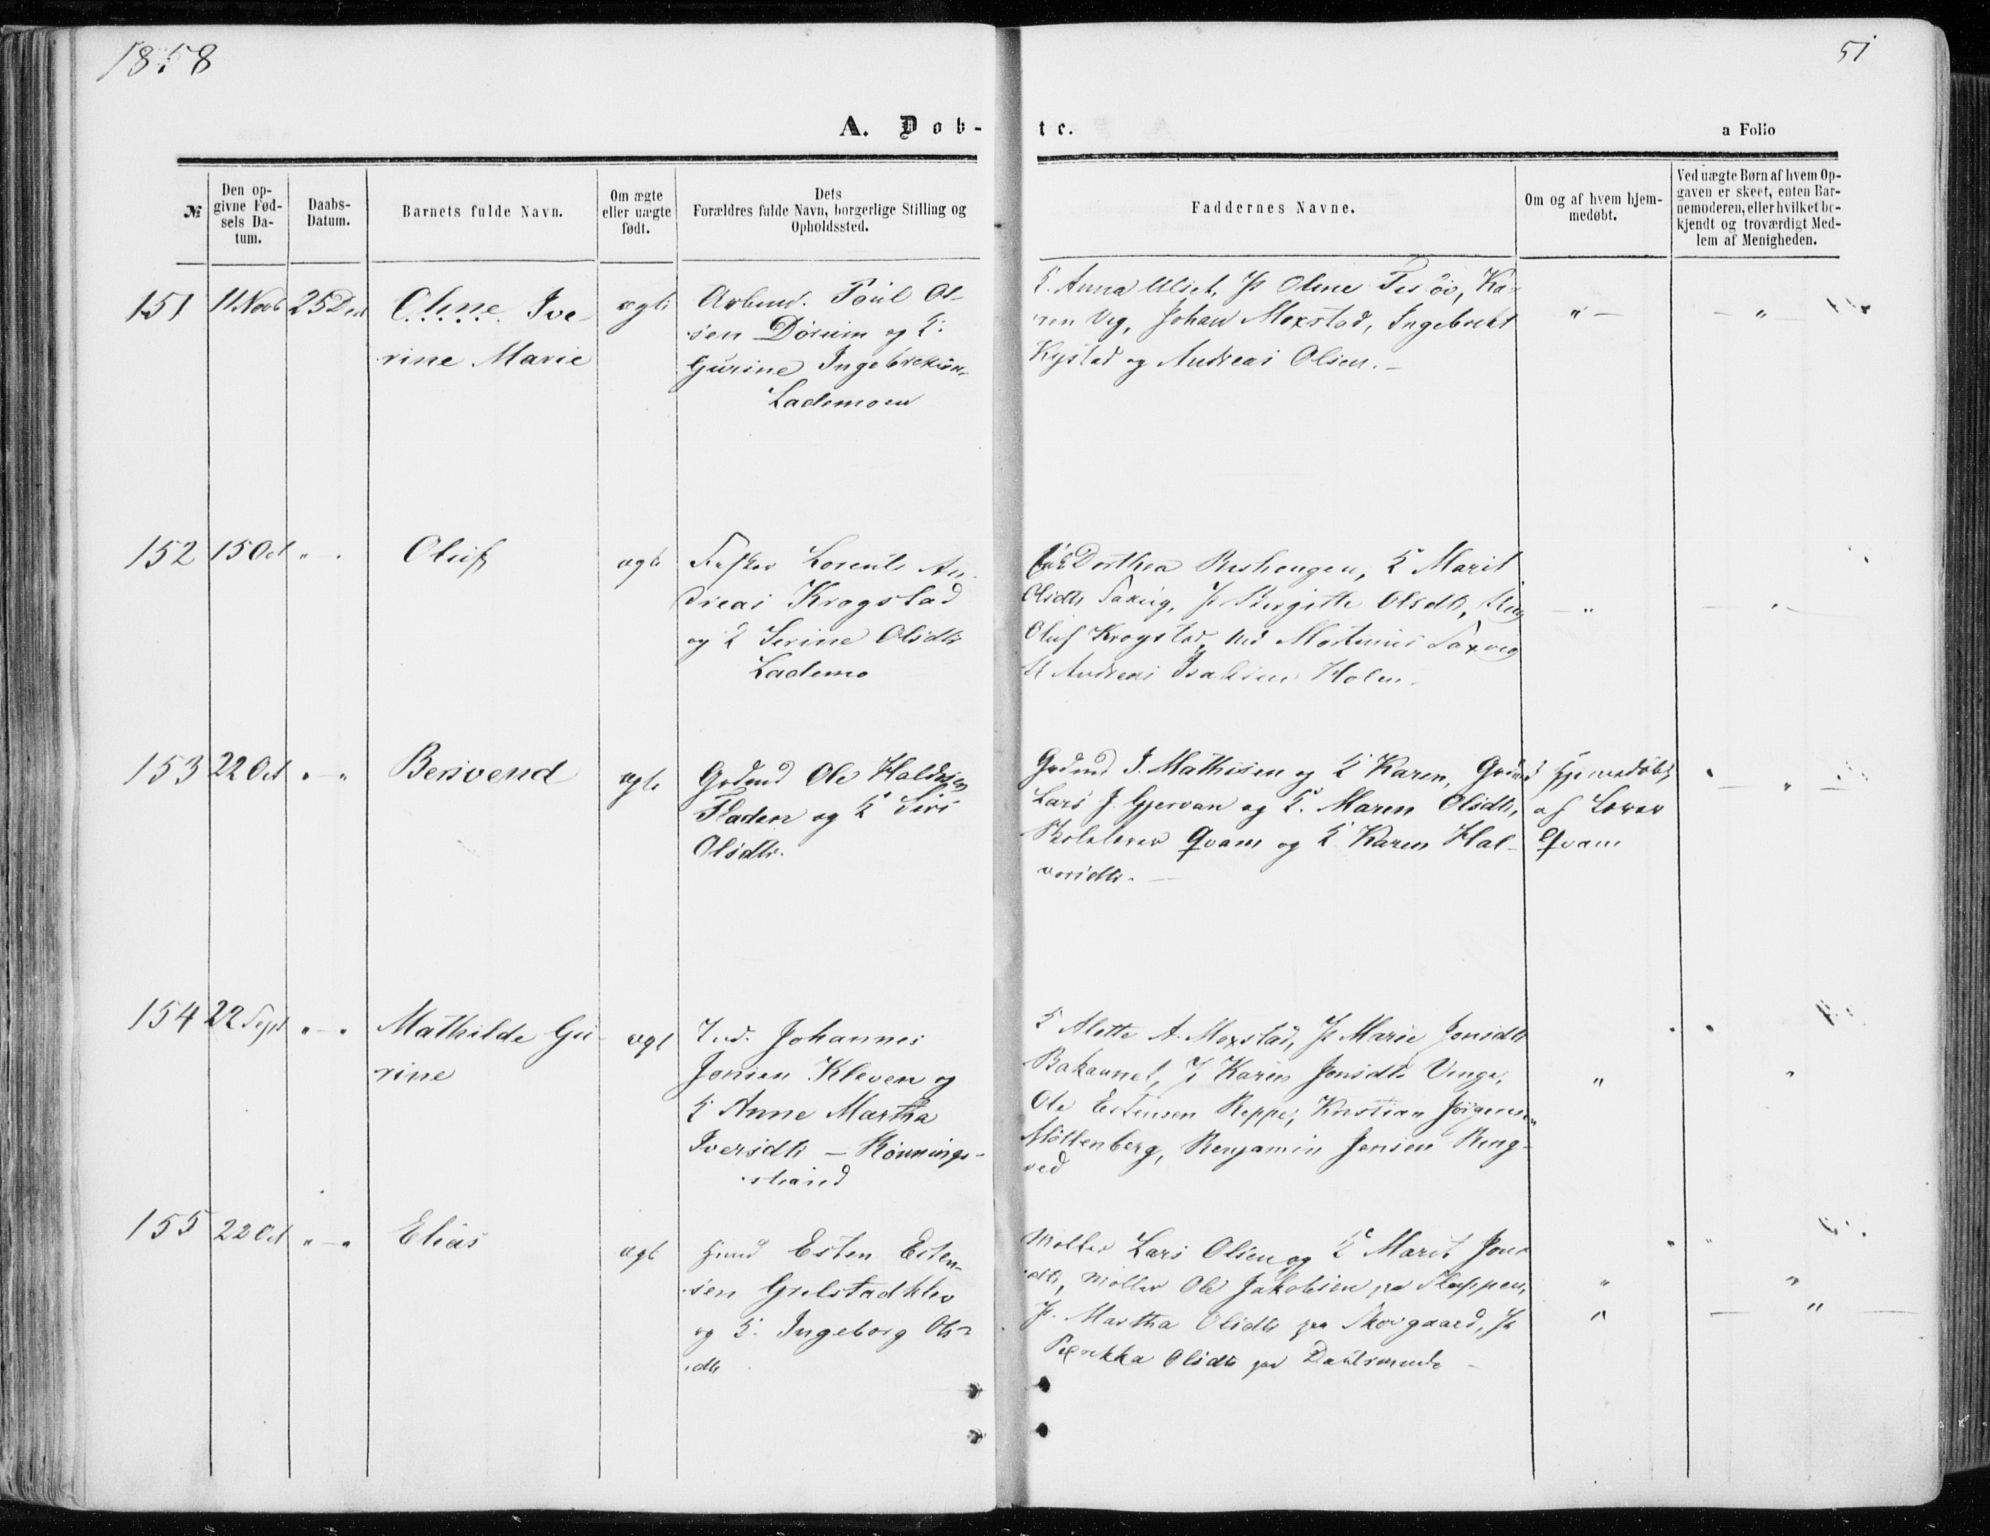 1858
51
A. Døb-
te.
a Folio
№
Den op-
givne Fød-
sels Da-
tum.
Daabs-
Datum.
Barnets fulde Navn.
Om ægte
eller uægte
født.
Dets
Forældres fulde Navn, borgerlige Stilling og
Opholdssted.
Faddernes Navne.
Om og af hvem hjem-
medøbt.
Ved uægte Børn af hvem Op-
gaven er skeet, enten Bar-
nemoderen, eller hvilket be-
kjendt og troværdigt Med-
lem af Menigheden.
151
11 Novb
25 Dec
Oline Ive-
rine Marie
ægte
Arbmd. Poul Ol-
sen Dørum og K.
Gurine Ingebrektsen
Lademoen
K. Anna P. Oline Ka-
ren Veg, Johan Moxstad, Ingebrekt
Rystad og Andreas Olsen. -
" -
- " -
152
15 Oct
" .
Oluf
ægte
Lorents An-
dreas Krogstad
og K Serine Olsdtr
Lademo
Dorthea K Marit
Olsdtr Saxvig, P Birgitte Olsdtr,
Oluf Krogstad, Martinus Saxvig
Andreas Isaksen Holm.
- "
153
22 Oct
" - "
Bersvend
ægte
Grdmd Ole Haldosen
Fladen og K Siri
Olsdtr.
Grdmd J. Mathisen og K Karen, Grdmd
Lars J. Gjervan og K. Maren Olsdtr,
Skolelærer Qvam og K Karen Hal-
vorsdtr. -
Hjemmedøbt
af Lærer
Qvam
- " -
154
22 Sept
" - "
Mathilde Gu-
rine
ægt
Ind. Johannes
Jonsen Kleven og
K Anne Martha
Iversdtr - Rønnings-
strand
K Mette A. Moxstad, P Marie Jonsdtr
Bakaunet, P Karen Jonsdtr Vinge,
Ole Estensen Reppe, Kristian Jörgensen
Möllenberg, Benjamin Jensen Ring-
ved
"
"
155
22 Oct
" - "
Elias
ægt
Esten Esten-
sen Grelstadklev
og K. Ingeborg Ols-
dtr
Møller Lars Olsen og K Marit Jons-
dtr, Møller Ole Jakobsen pr
P. Martha Olsdtr paa Skovgaard, P
Olsdtr paa
"
"
"
- " -